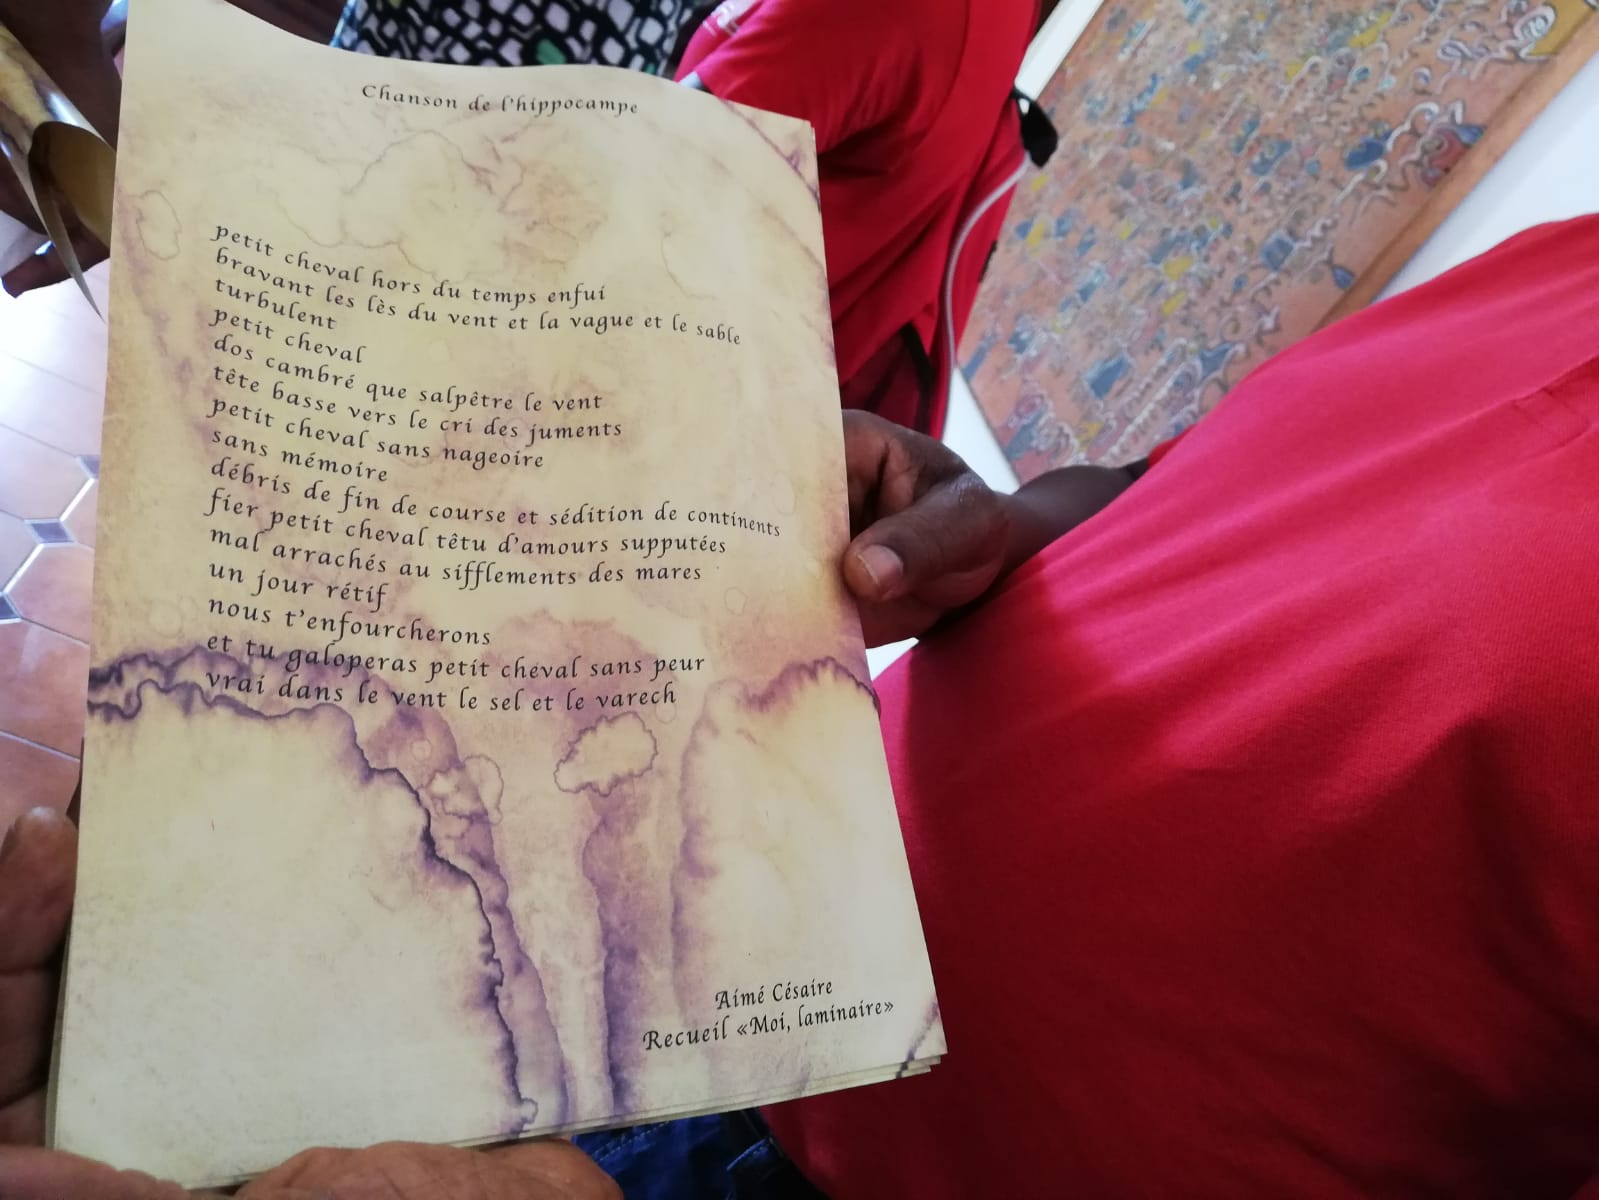 Chanson de l'hippocampe
petit cheval hors du temps enfui
bravant les lès du vent et la vague et le sable
turbulent
petit cheval
dos cambré que salpêtre le vent
tête basse vers le cri des juments
petit cheval sans nageoire
sans mémoire
débris de fin de course et sédition de continents
fier petit cheval têtu d'amours supputées
mal arrachés au sifflements des mares
un jour rétif
nous t'enfourcherons
et tu galoperas petit cheval sans peur
vrai dans le vent le sel et le varech
Aimé Césaire
Recueil «Moi, laminaire»